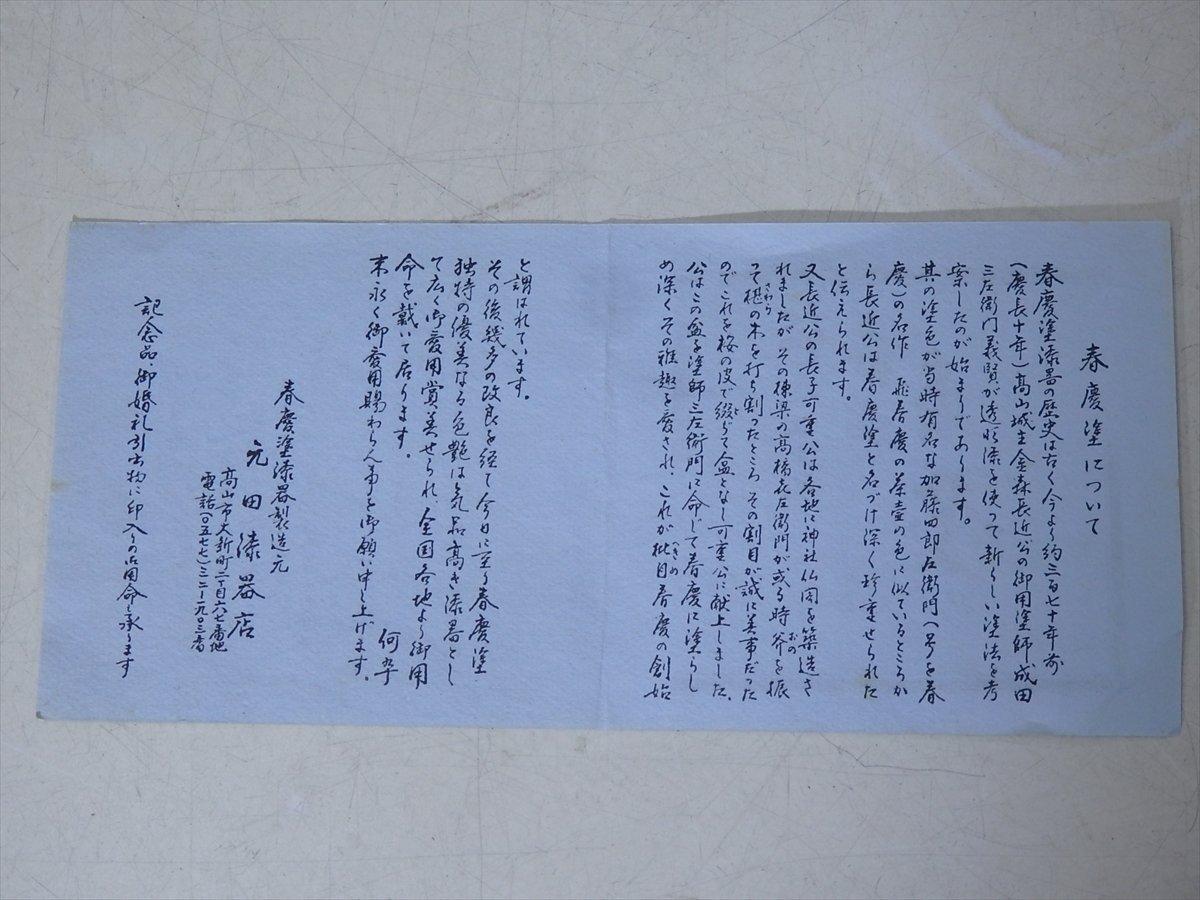 春慶塗について
春慶塗漆器の歴史は古く今より約三百七十年前
(慶長十年)高山城主金森長近公の御用塗師成田
三左衛門義賢が透明漆を使って新らしい塗法を考
案したのが始まりであります。
其の塗色が当時有名な加藤四郎左衛門(号を春
慶)の名作 飛春慶の茶壷の色に似ているところか
ら長近公は春慶塗と名づけ深く珍重せられた
と伝えられます。
又長近公の長子可重公は各地に神社仏閣を築造さ
れましたが その棟梁の高橋喜左衛門が或る時斧を振
って椹の木を打ち割ったところ その割目が誠に美事だった
のでこれを桜の皮で綴じて盆となし可重公に献上しました。
公はこの盆を塗師三左衛門に命じて春慶に塗らし
め深くその雅趣を愛され、これが批目春慶の創始
と謂はれています。
その後幾多の改良を経て今日に至り春慶塗
独特の優美なる色艶は気品高き漆器とし
て広く御愛用賞美せられ、全国各地より御用
命を戴いて居ります。 何卒
末永く御愛用賜わらん事を御願い申し上げます。
春慶塗漆器製造元
元田漆器店
高山市大新町二丁目六七番地
電話(〇五七七)三二ー一九〇三番
記念品御婚礼引出物に印入りの御用命承ります